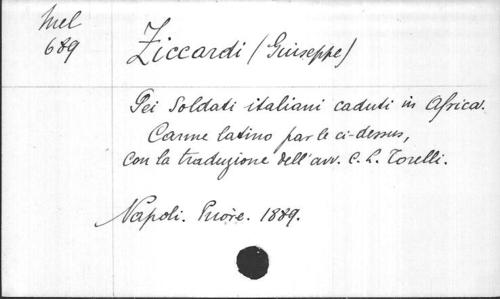 Mel
689
Ziccardi (Giuseppe)
Pei Soldati italiani caduti in Africa.
Carme latino par le ci-dessus,
con la traduzione dell'avv. C. L. Torelli.
Napoli. Priore. 1889.